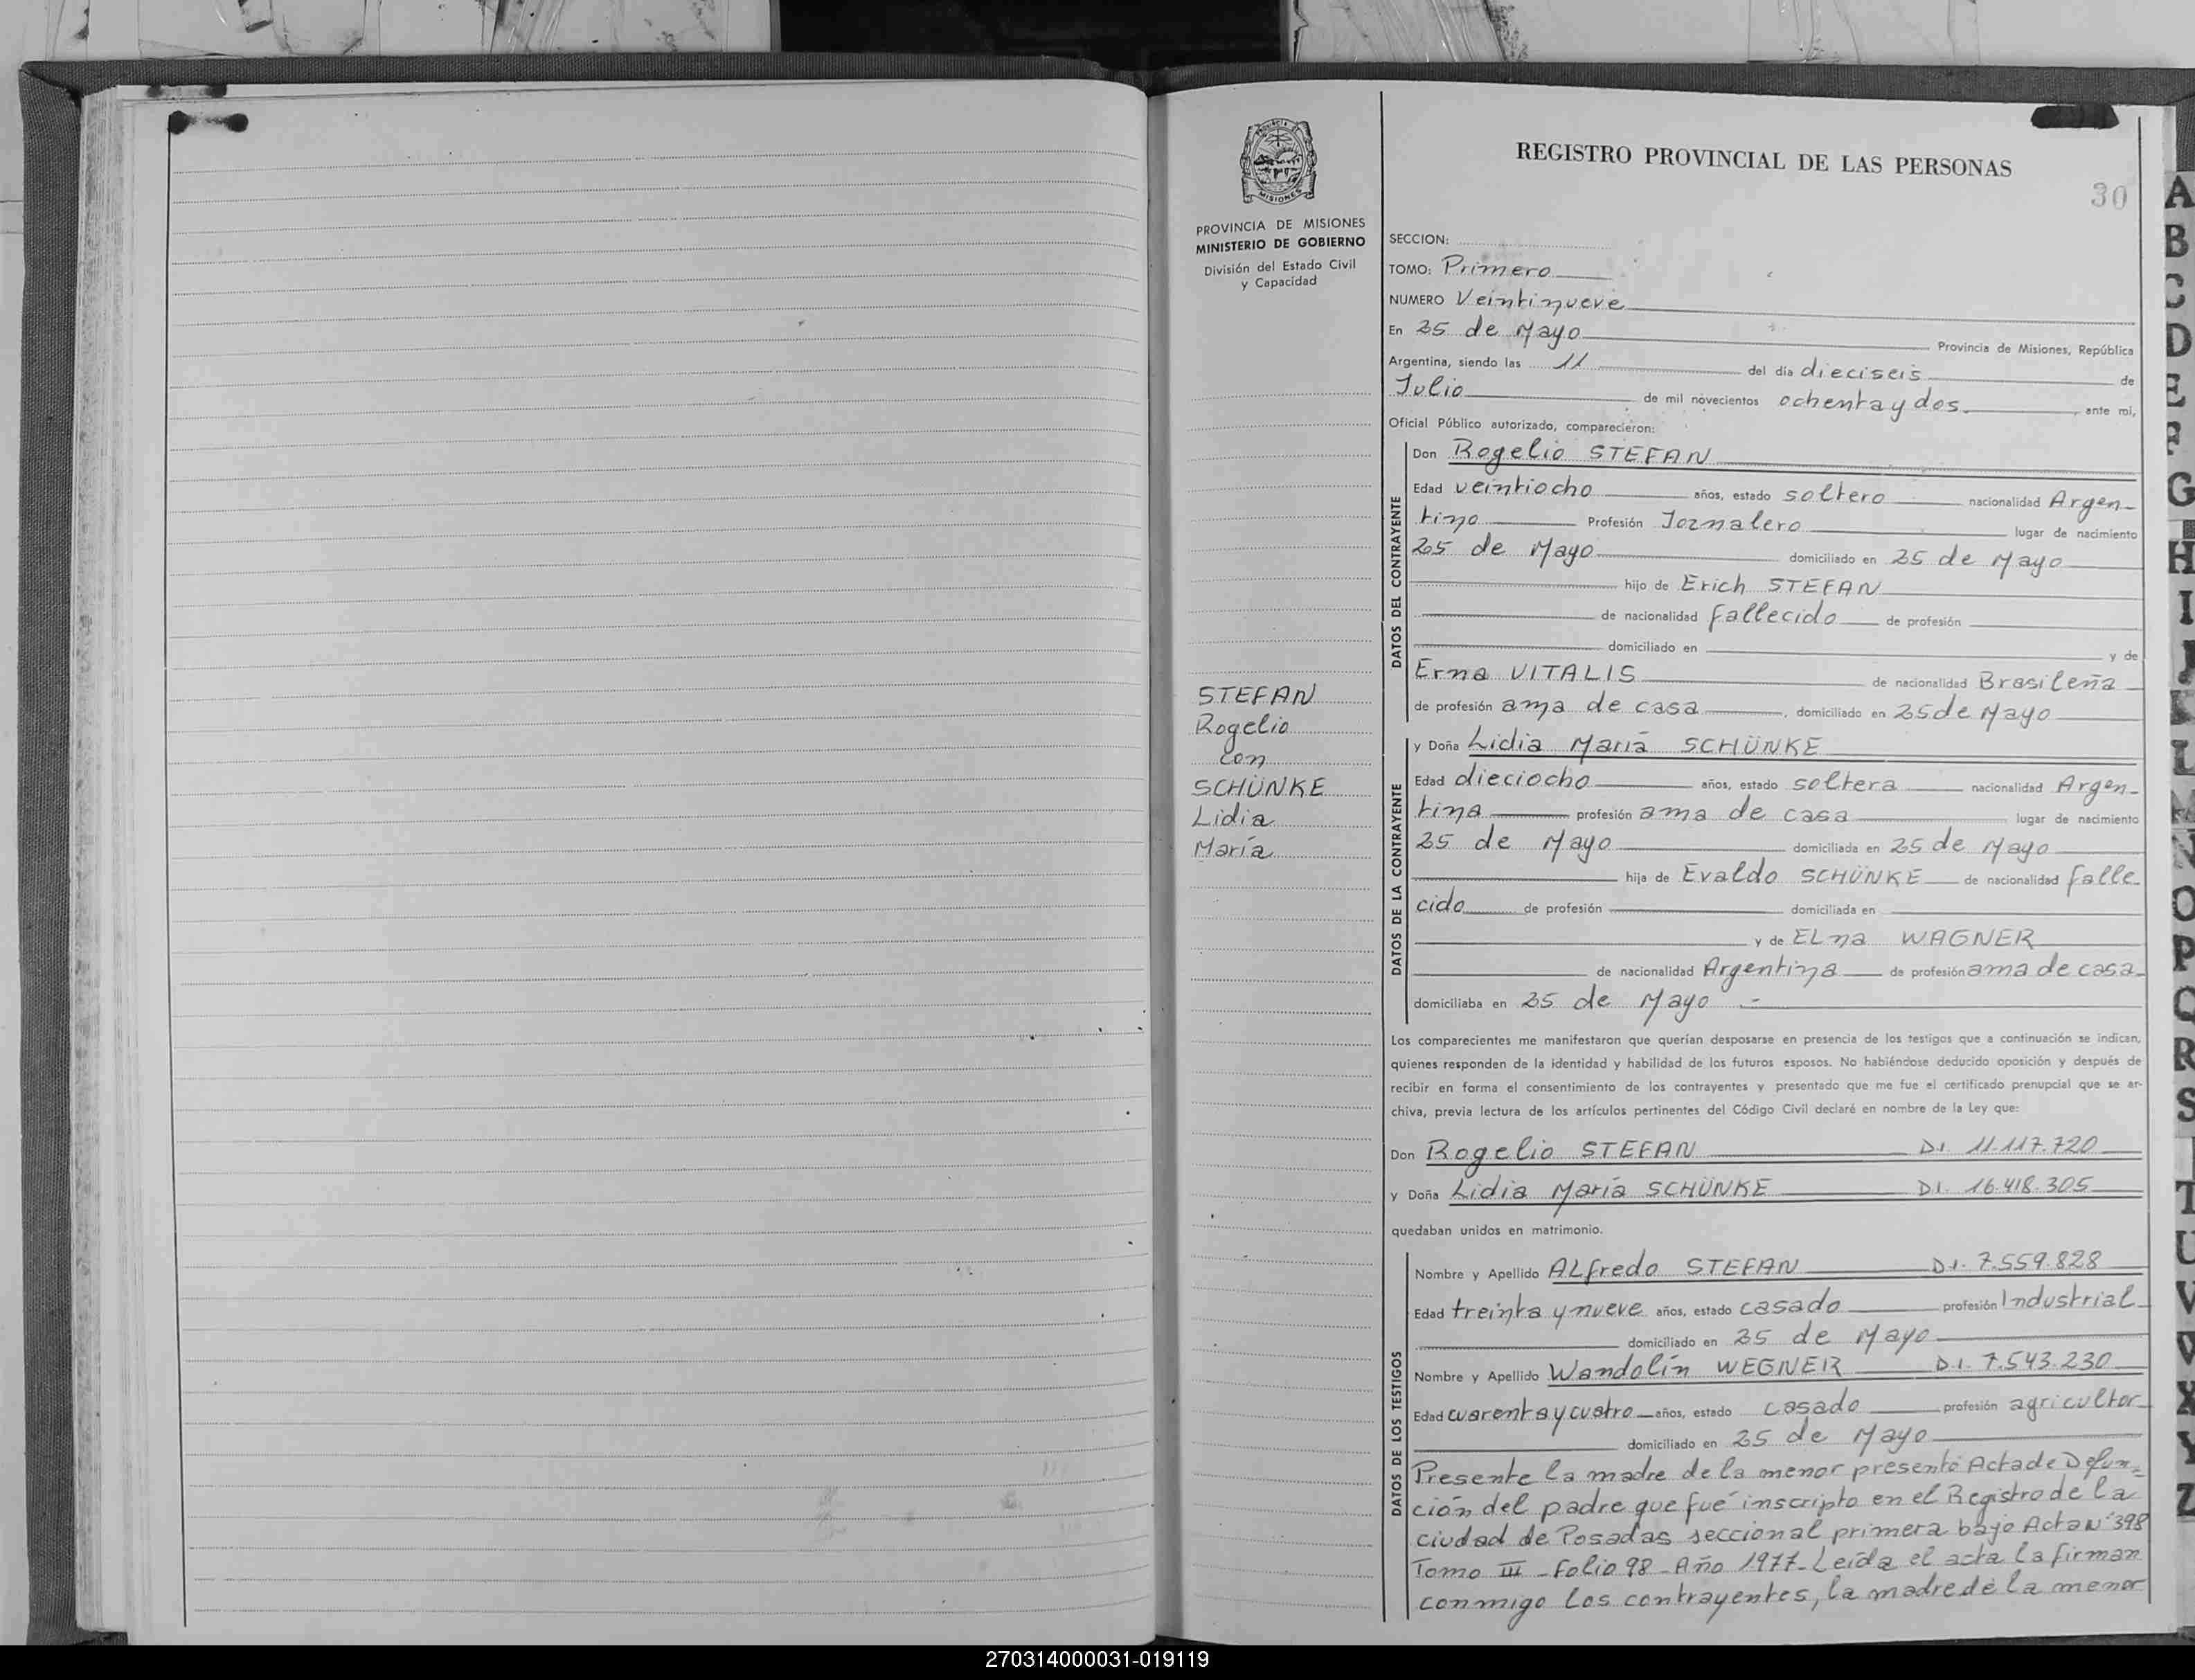 PROVINCIA DE MISIONES
MINISTERIO DE GOBIERNO
División del Estado Civil
y Capacidad
STEFAN
Rogelio
con
SCHÜNKE
Lidia
María
REGISTRO PROVINCIAL DE LAS PERSONAS
30
SECCION:
TOMO: Primero
NUMERO Veintinueve
En 25 de Mayo Provincia de Misiones, República
Argentina, siendo las 11 del día dieciseis de
Julio de mil novecientos ochenta y dos, ante mi,
Oficial Público autorizado, comparecieron:
DATOS DEL CONTRAYENTE
Don Rogelio STEFAN
Edad veintiocho años, estado soltero nacionalidad Argen-
tino Profesión Jornalero lugar de nacimiento
25 de Mayo domiciliado en 25 de Mayo
hijo de Erich STEFAN
de nacionalidad fallecido de profesión
domiciliado en y de
Erna VITALIS de nacionalidad Brasileña
de profesión ama de casa, domiciliado en 25 de Mayo
DATOS DE LA CONTRAYENTE
y Doña Lidia María SCHÜNKE
Edad dieciocho años, estado soltera nacionalidad Argen-
tina profesión ama de casa lugar de nacimiento
25 de Mayo domiciliada en 25 de Mayo
hija de Evaldo SCHÜNKE de nacionalidad falle-
cido de profesión domiciliada en
y de ELna WAGNER
de nacionalidad Argentina de profesión ama de casa
domiciliaba en 25 de Mayo .-
Los comparecientes me manifestaron que querían desposarse en presencia de los testigos que a continuación se indican,
quienes responden de la identidad y habilidad de los futuros esposos. No habiéndose deducido oposición y después de
recibir en forma el consentimiento de los contrayentes y presentado que me fue el certificado prenupcial que se ar-
chiva, previa lectura de los artículos pertinentes del Código Civil declaré en nombre de la Ley que:
Don Rogelio STEFAN D.I. 11.117.720
y Doña Lidia María SCHÜNKE D.I. 16.418.305
quedaban unidos en matrimonio.
DATOS DE LOS TESTIGOS
Nombre y Apellido ALfredo STEFAN D.I. 7.559.828
Edad treinta y nueve años, estado casado profesión Industrial
domiciliado en 25 de Mayo
Nombre y Apellido Wandolín WEGNER D.I. 7.543.230
Edad cuarenta y cuatro años, estado casado profesión agricultor
domiciliado en 25 de Mayo
Presente la madre de la menor presentó Acta de Defun=
ción del padre que fué inscripto en el Registro de la
ciudad de Posadas seccional primera bajo Acta Nº398
Tomo III - Folio 98 - Año 1977- Leída el acta la firman
conmigo los contrayentes, la madre de la menor
270314000031-019119